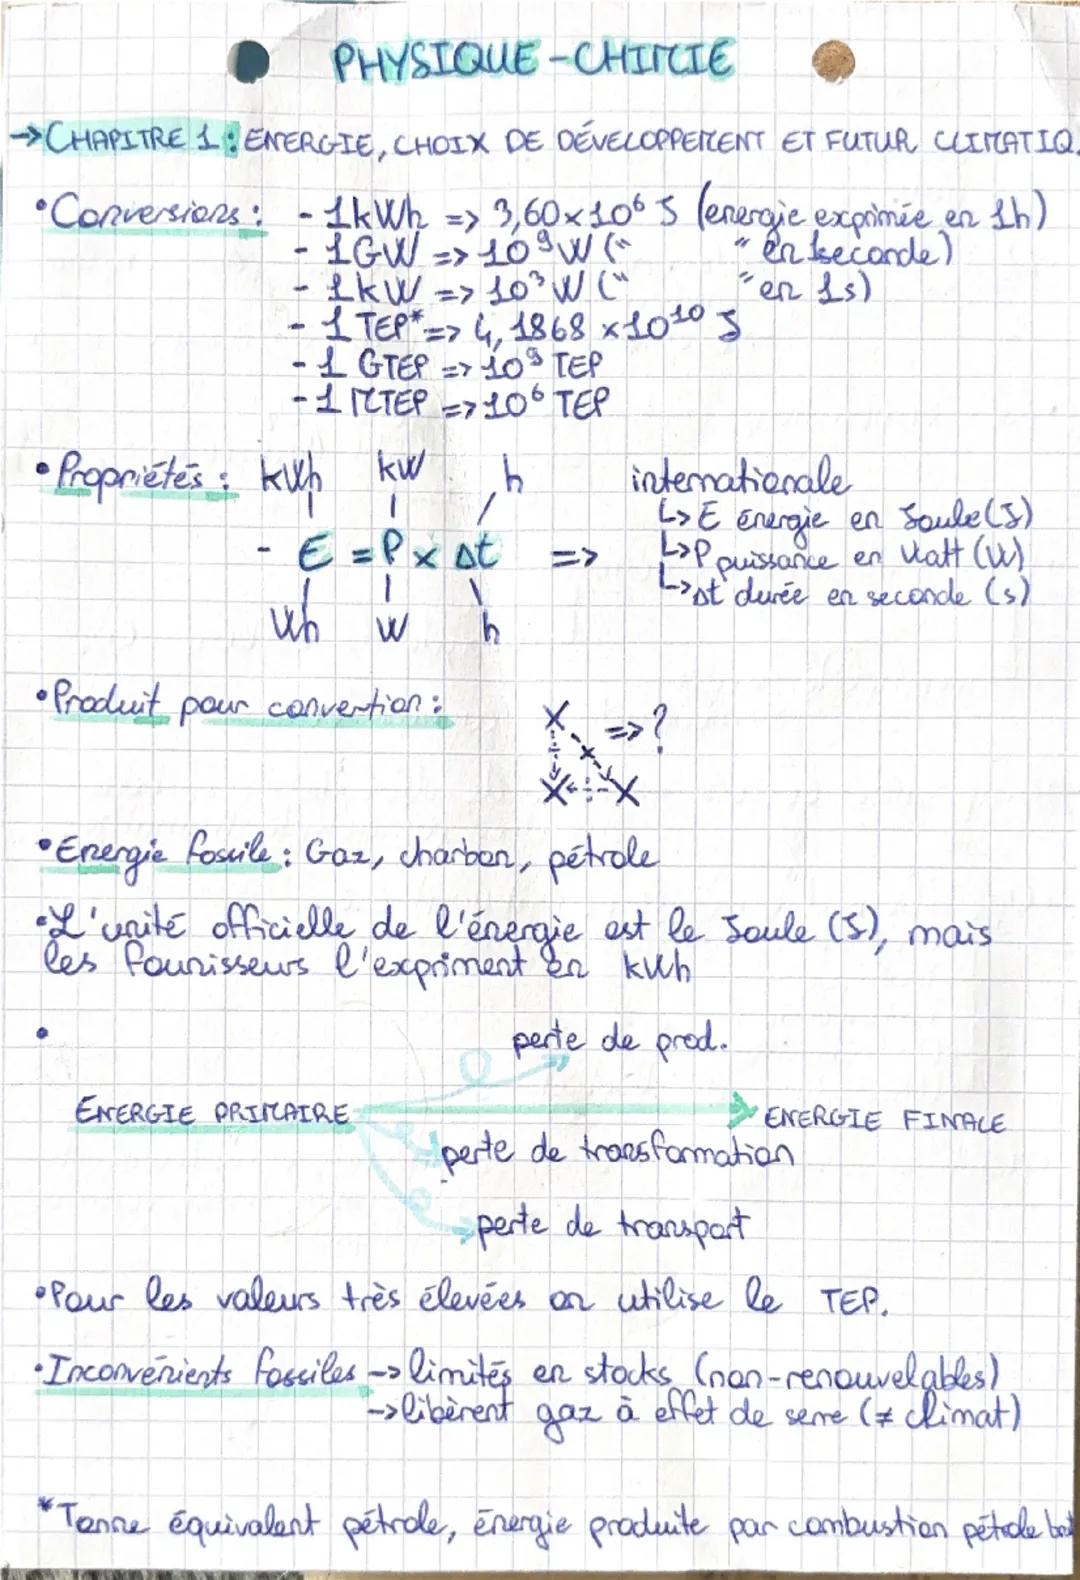 PHYSIQUE-CHIMIE
→CHAPITRE 1: ENERGIE, CHOIX DE DÉVELOPPEMENT ET FUTUR CLIMATIQ.
•Conversions: - 1kWh => 3,60×10⁶ J (energie exprimée en 1h)
- 1GW => 10⁹ W (" " en 1seconde)
- 1kW => 10³ W (" " en 1s)
- 1 TEP* => 4,1868 ×10¹⁰ J
- 1 GTEP => 10⁹ TEP
- 1 MTEP => 10⁶ TEP
•Propriétés: kWh kW h internationale
↳E énergie en Joule (J)
- E = P × Δt => ↳P puissance en Watt (W)
↳Δt durée en seconde (s)
Wh W h
•Produit pour convertion:
X => ?
÷ ×
X ÷ X
•Energie fossile: Gaz, charbon, pétrole
•L'unité officielle de l'énergie est le Joule (J), mais
les founisseurs l'expriment en kWh
•
perte de prod.
ENERGIE PRIMAIRE → ENERGIE FINALE
perte de transformation
perte de transport
•Pour les valeurs très élevées on utilise le TEP.
•Inconvénients fossiles -> limités en stocks (non-renouvelables)
->libèrent gaz à effet de serre (≠ climat)
*Tonne équivalent pétrole, énergie produite par combustion pétrole